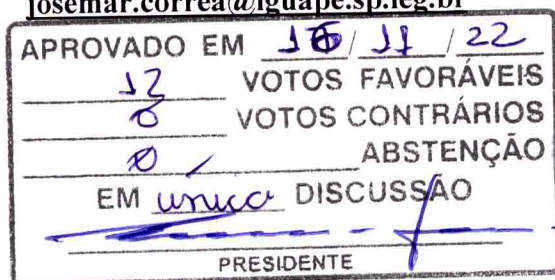 josemar.correa@iguape.sp.leg.br
APROVADO EM 16/11/22
12 VOTOS FAVORÁVEIS
0 VOTOS CONTRÁRIOS
0 ABSTENÇÃO
EM unica DISCUSSÃO
PRESIDENTE